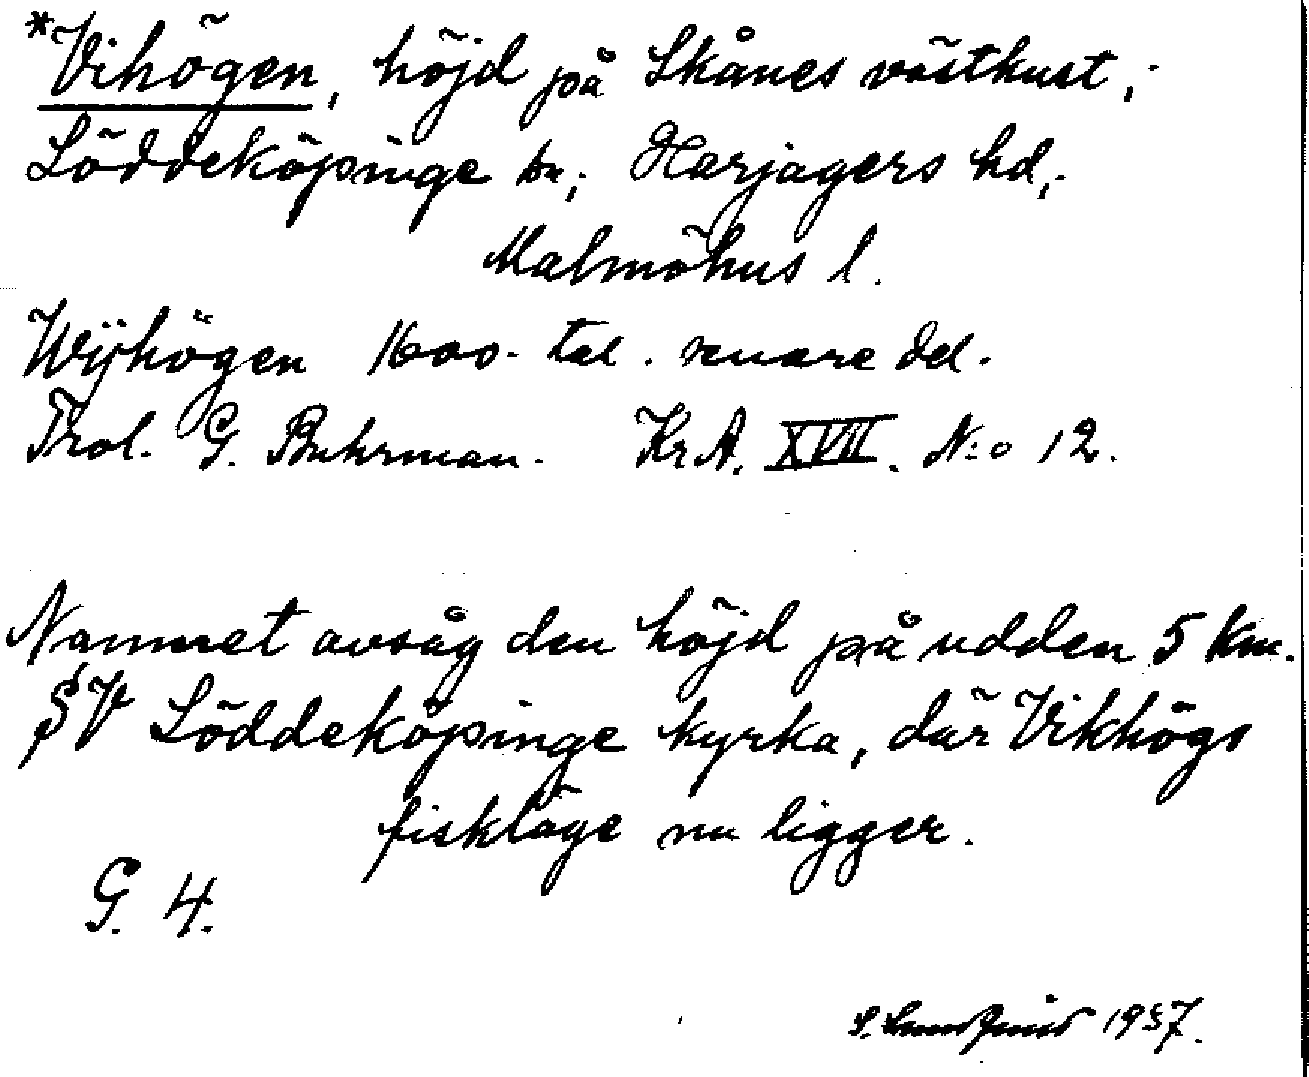 *Vihögen, höjd på Skånes västkust,
Löddeköpinge sn, Harjagers hd,
Malmöhus l.
Wijhögen 1600-tal. senare del.
Trol. G. Buhrman. KrA. XVII. N:o 12.
Namnet avsåg den höjd på udden 5 km.
SV Löddeköpinge kyrka, där Vikhögs
fiskläge nu ligger.
G. 4.
1957.